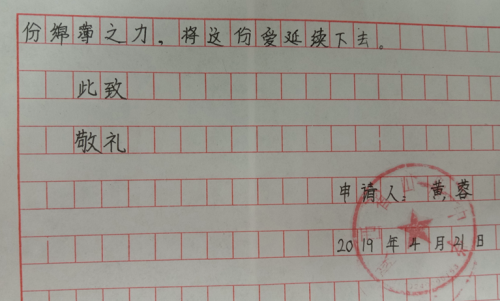 份绵薄之力，将这份爱延续下去。
此致
敬礼
申请人：黄蓉
2019年4月21日